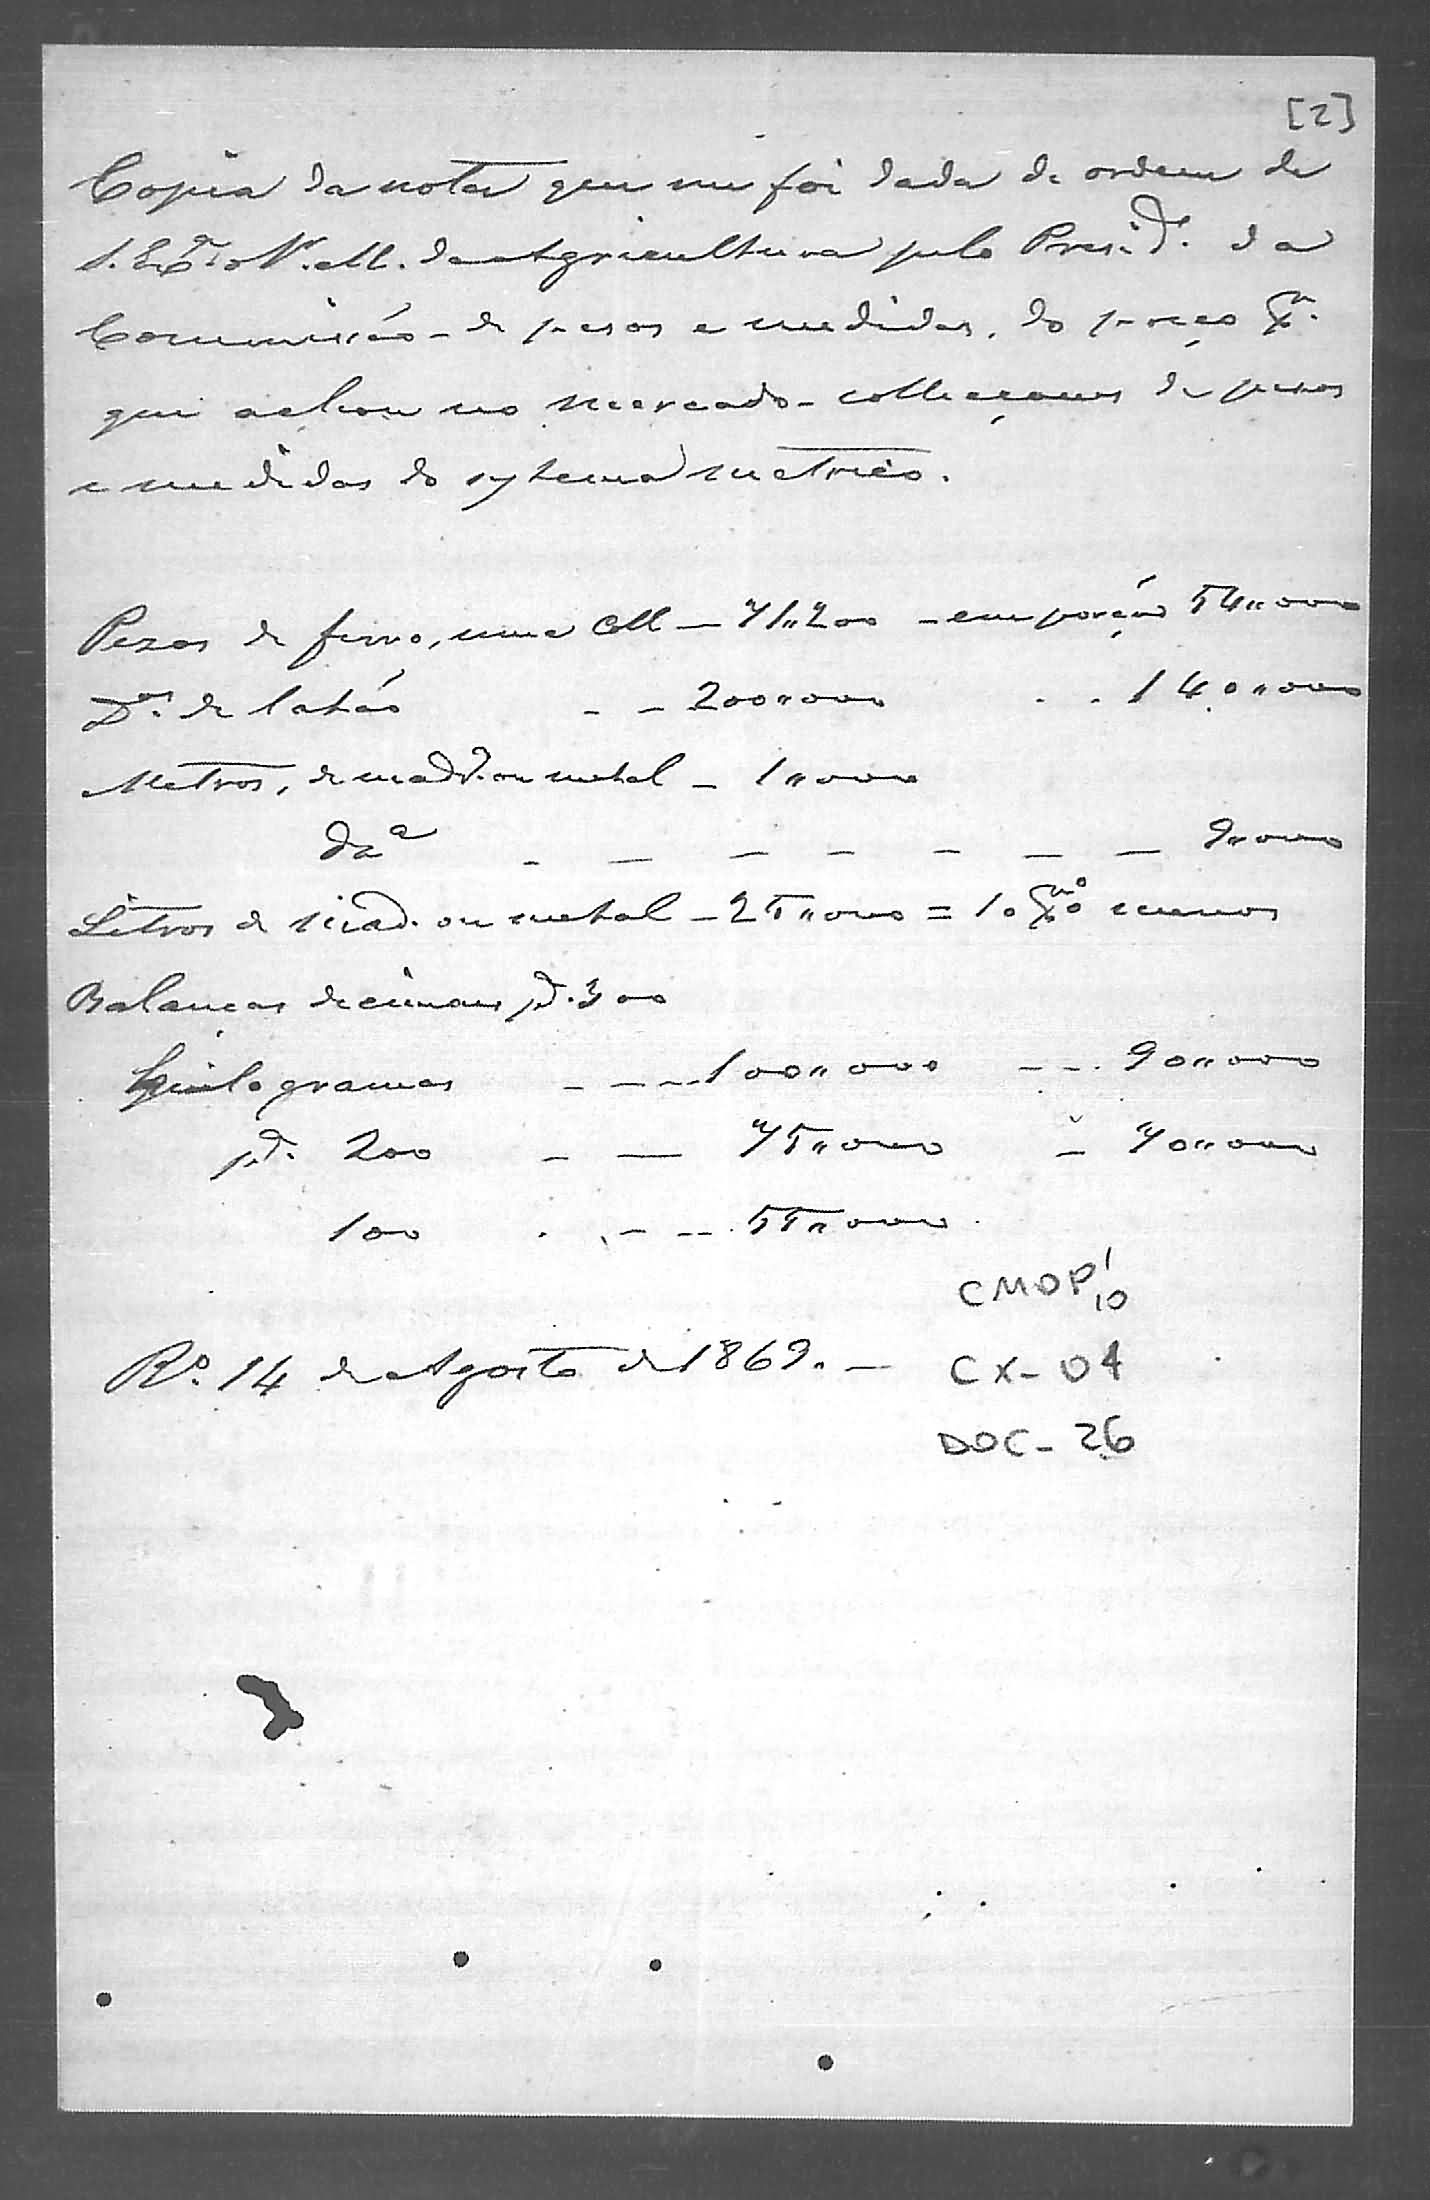 [2]
Copia da nota que me foi dada de ordem de
S. Ex.ª o S.r M. da Agricultura pelo Presid.e da
Commissão de pesos e medidas, do preço p.r
que achou no mercado collecçoens de pesos
e medidas do systema metrico.
Pezos de ferro, uma Coll — 71"200 — em porção 54"000
D.os de latão — — 200"000 . . 140"000
Metros, de mad.ra ou metal — 1"000
Dz.ª — — — — — — — 9"000
Litros de mad. ou metal — 25"000 = 10 p% menos
Balanças decimaes p.ª 300
Kilogramas — — — 100"000 — — . 90"000
p.ª 200 — — 75"000 — 70"000
100 . . — — . 55"000
CMOP 1/10
R.o 14 de Agosto de 1869. —
CX-04
DOC-26